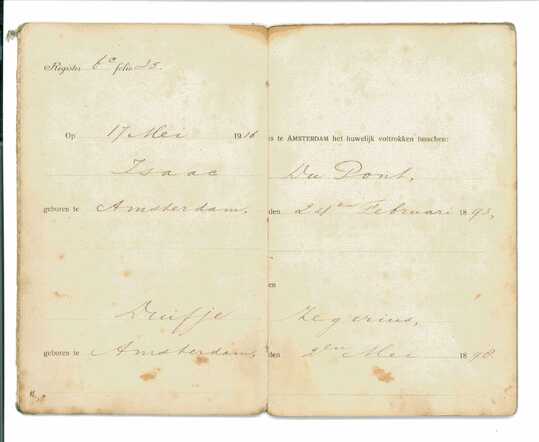 Register 6e folio 25.
Op 17 Mei 1916 is te AMSTERDAM het huwelijk voltrokken tusschen:
Isaac Du Pont,
geboren te Amsterdam, den 24en Februari 1893,
en
Duifje Zegerius,
geboren te Amsterdam, den 2en Mei 1898.